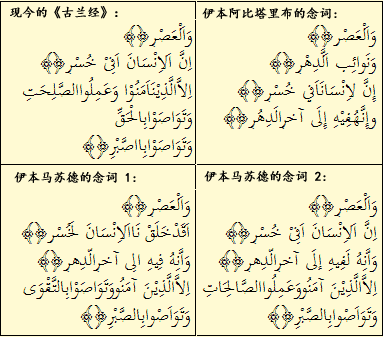 现今的《古兰经》:
وَالْعَصْرِ﴿﴾
إِنَّ الاِنْسَانَ لَفِىْ خُسْرٍ﴿﴾
اِلاَّالَّذِيْنَ اٰمَنُوْا وَعَمِلُواالصّٰلِحٰتِ
وَتَوَاصَوْابِالْحَقِّ
وَتَوَاصَوْابِالصَّبْرِ﴿﴾
伊本阿比塔里布的念词:
وَالْعَصْرِ﴿﴾
وَنَوائِبِ الَّدِهْرِ﴿﴾
إِنَّ لاِنْسَانَافِي خُسْرٍ﴿﴾
وإِنَّهُفِيْهِ إِلَى آخرالدِهْرِ﴿﴾
伊本马苏德的念词 1:
وَالْعَصْرِ﴿﴾
لَقَدْخَلَقْنَاالاِنْسَانَ لَخُسْرٍ﴿﴾
وَإِنَّهُ فِيْهِ إلى آخرالّدِهرِ﴿﴾
اِلاَّالَّذِيْنَ آمَنُووَتَوَاصَوْابِالتَّقْوَى
وَتَوَاصَوْابِالصَّبْرِ﴿﴾
伊本马苏德的念词 2:
وَالْعَصْرِ﴿﴾
اِنَّ الاِنْسَانَ لَفِىْ خُسْرٍ﴿﴾
وَإِنَّهُ لَفِيْهِ إِلَى آخرالّدِهرِ﴿﴾
اِلاَّالَّذِيْنَ آمَنُووَعَمِلُوالصَّالِحَاتِ
وَتَوَاصَوْابِالصَّبْرِ﴿﴾